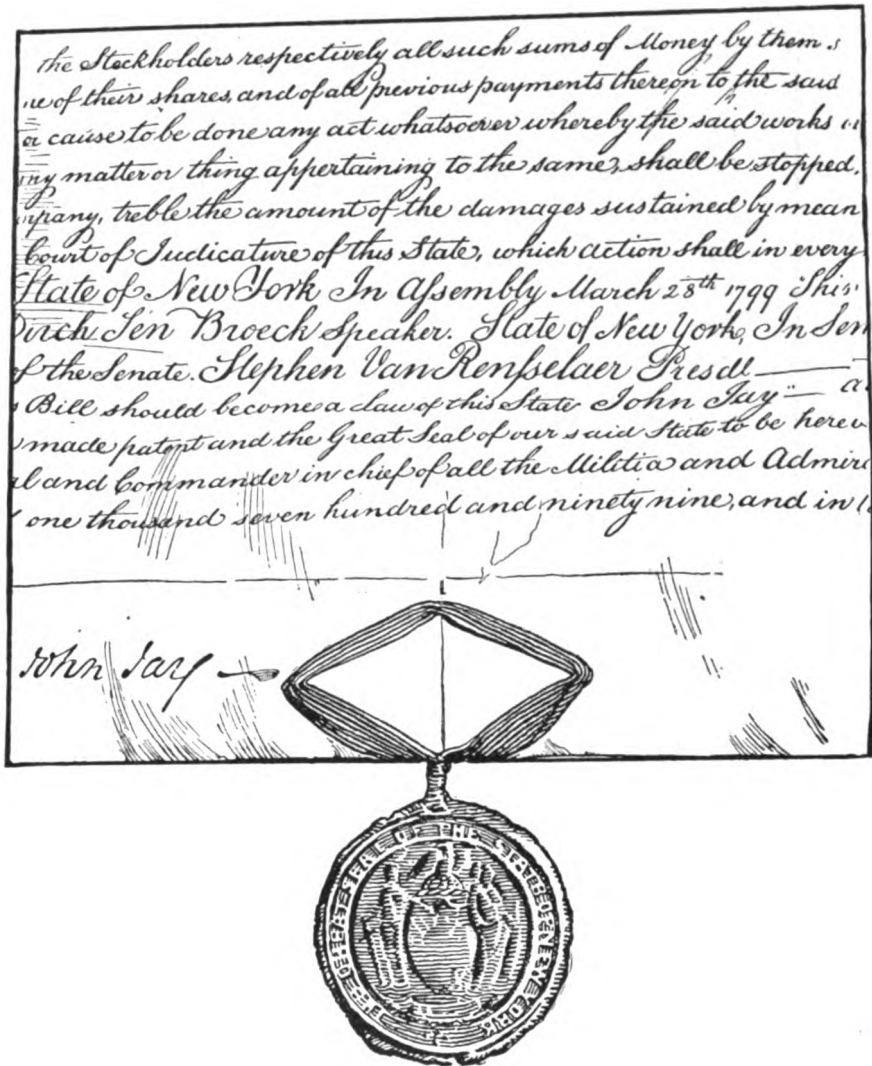 the Stockholders respectively all such sums of Money by them
of their shares, and of all previous payments thereon to the said
or cause to be done any act whatsoever whereby the said works
any matter or thing appertaining to the same, shall be stopped,
mpany, treble the amount of the damages sustained by mean
Court of Judicature of this State, which action shall in every
State of New York In Assembly March 28th 1799 This
Dirck Ten Broeck Speaker. State of New York, In Sen
of the Senate. Stephen Van Rensselaer Presdt
Bill should become a Law of this State John Jay
made patent and the Great Seal of our said State to be here
al and Commander in chief of all the Militia and Admir
one thousand seven hundred and ninety nine, and in
John Jay
THE GREAT SEAL OF THE STATE OF NEW YORK